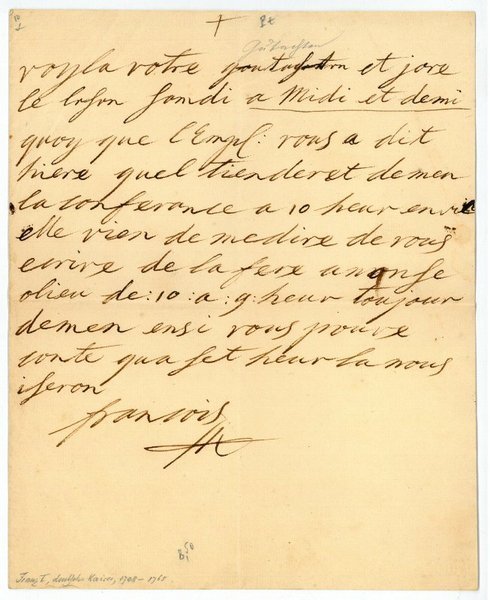 +
Gutachten
voyla votre goutaghten et jore
le lason samdi a Midi et demi
quoy que l'Emp: vous a dit
hiere quel tienderet demen
la conferance a 10 heur
elle vien de me dire de vous
ecrire de la fere anonse
olieu de :10: a :9: heur toujour
demen ensi vous pouve
conte qua set heur la nous
iseron
francois
Franz I, deutscher Kaiser, 1708–1765